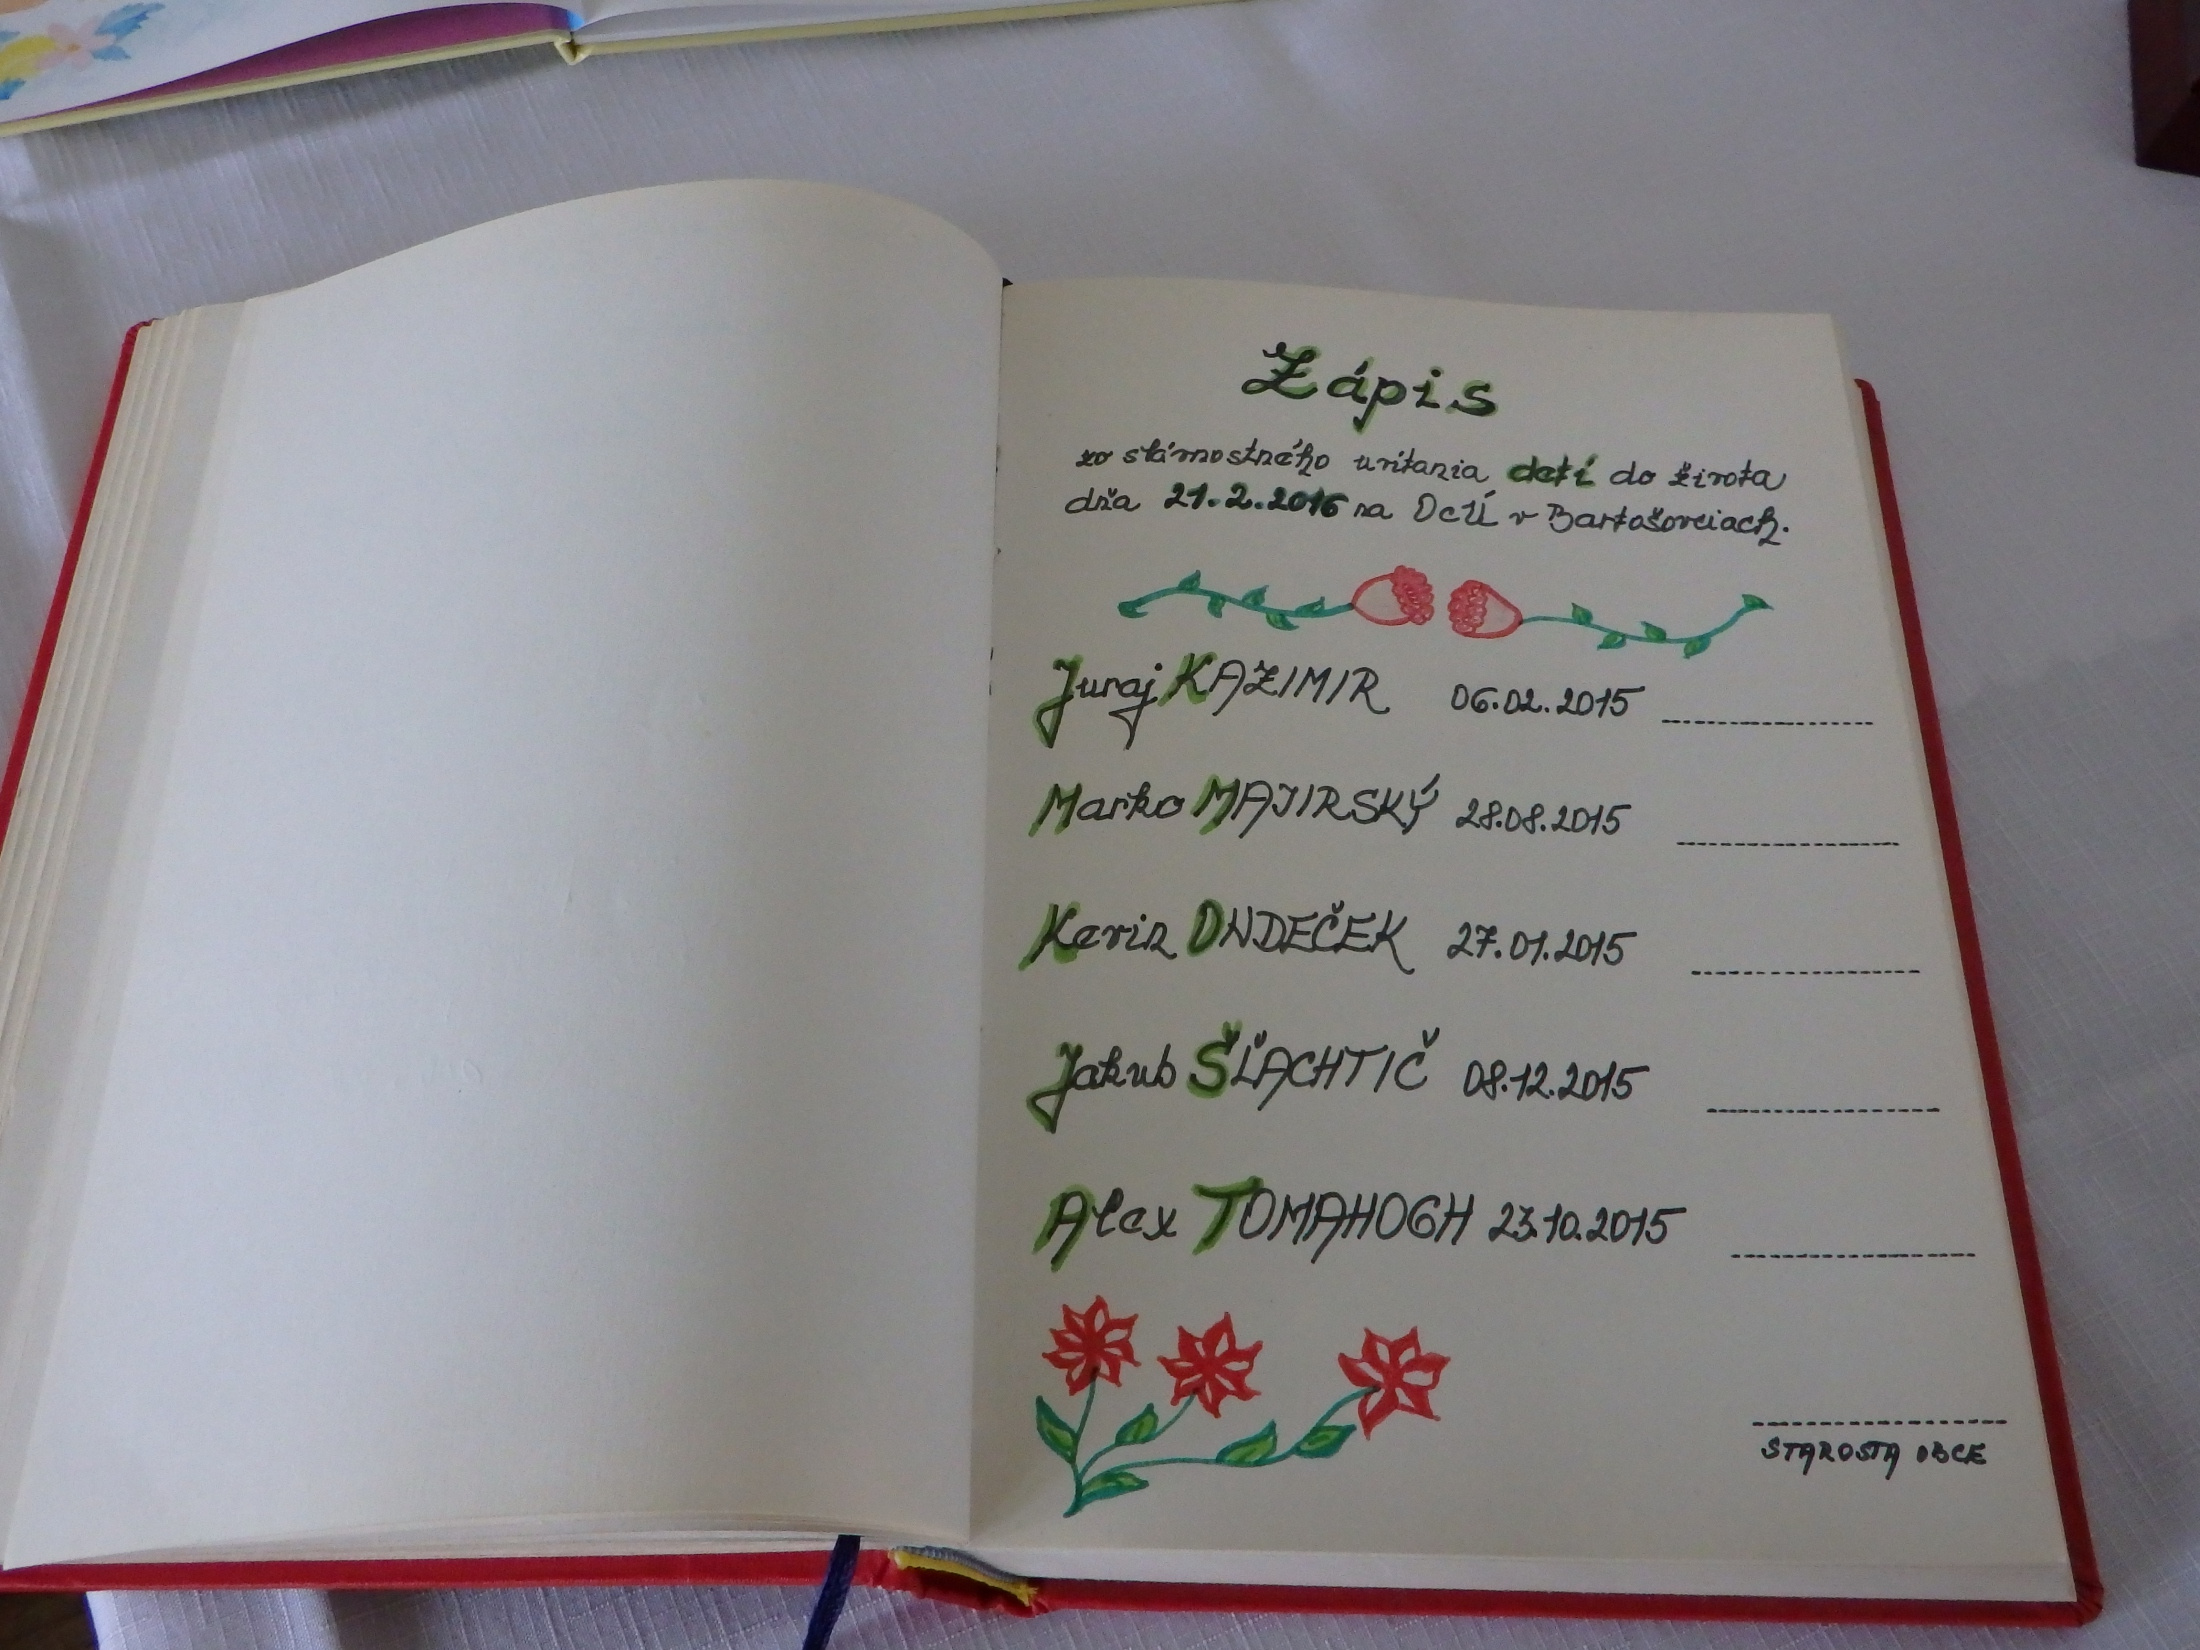 Zápis
zo slávnostného uvítania detí do života
dňa 21.2.2016 na OcÚ v Bartošovciach.
Juraj KAZIMIR 06.02.2015
Marko MAJIRSKÝ 28.08.2015
Kevin ONDEČEK 27.01.2015
Jakub ŠĽACHTIČ 08.12.2015
Alex TOMAHOGH 23.10.2015
STAROSTA OBCE